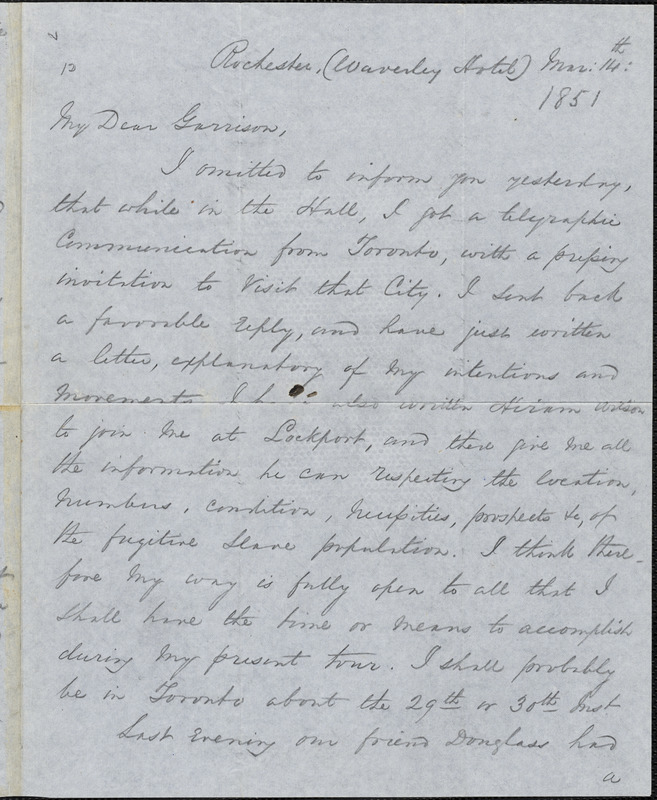 Rochester, (Waverley Hotel) Mar: 14th:
1851
My Dear Garrison,
I omitted to inform you yesterday,
that while in the Hall, I got a telegraphic
Communication from Toronto, with a pressing
invitation to Visit that City. I sent back
a favorable reply, and have just written
a letter, explanatory of my intentions and
Movements. I have also written Hiram Wilson
to join me at Lockport, and there give me all
the information he can respecting the location,
Numbers, condition, necessities, prospects &c, of
the fugitive slave population. I think there-
fore my way is fully open to all that I
shall have the time or means to accomplish
during my present tour. I shall probably
be in Toronto about the 29th or 30th Inst
Last Evening our friend Douglass had
a